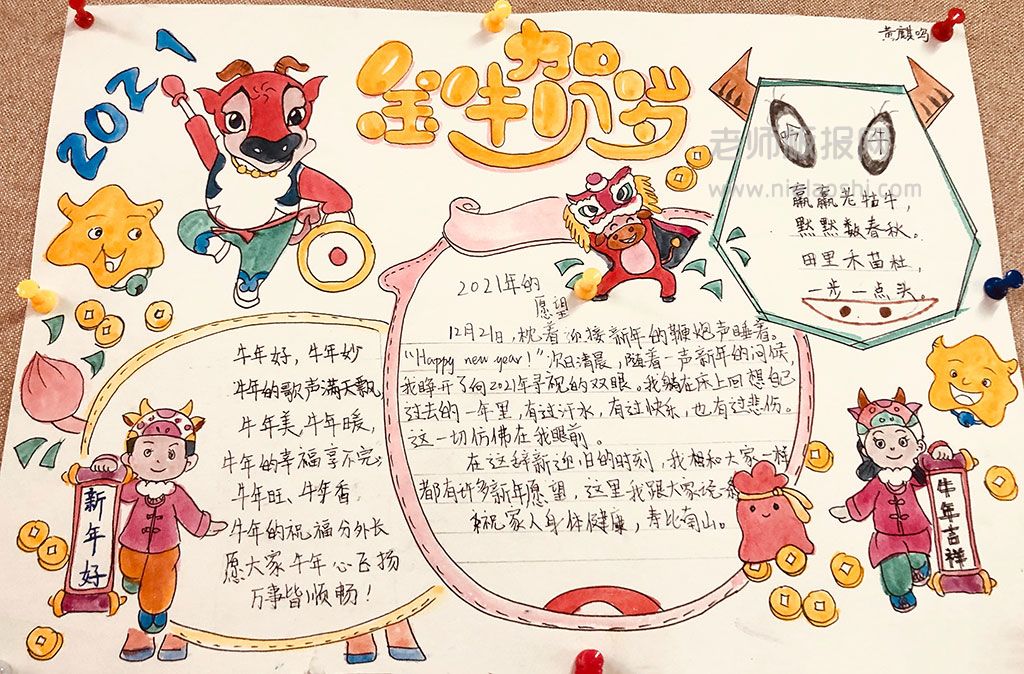 2021
金牛贺岁
黄麒鸣
老师板报网
www.niclaoshi.com
吟牛
羸羸老牯牛，
默默数春秋。
田里禾苗壮，
一步一点头。
2021年的
愿望
12月21日，枕着迎接新年的鞭炮声睡着。
"Happy new year！"次日清晨，随着一声新年的问候，
我睁开了向2021年寻视的双眼。我躺在床上回想自己
过去的一年里，有过汗水，有过快乐，也有过悲伤。
这一切仿佛在我眼前。
在这辞新迎旧的时刻，我想和大家一样
都有许多新年愿望，这里我跟大家说
祝家人身体健康，寿比南山。
牛年好，牛年妙
牛年的歌声满天飘
牛年美，牛年暖，
牛年的幸福享不完；
牛年旺、牛年香
牛年的祝福分外长
愿大家牛年心飞扬
万事皆顺畅！
新年好
牛年吉祥